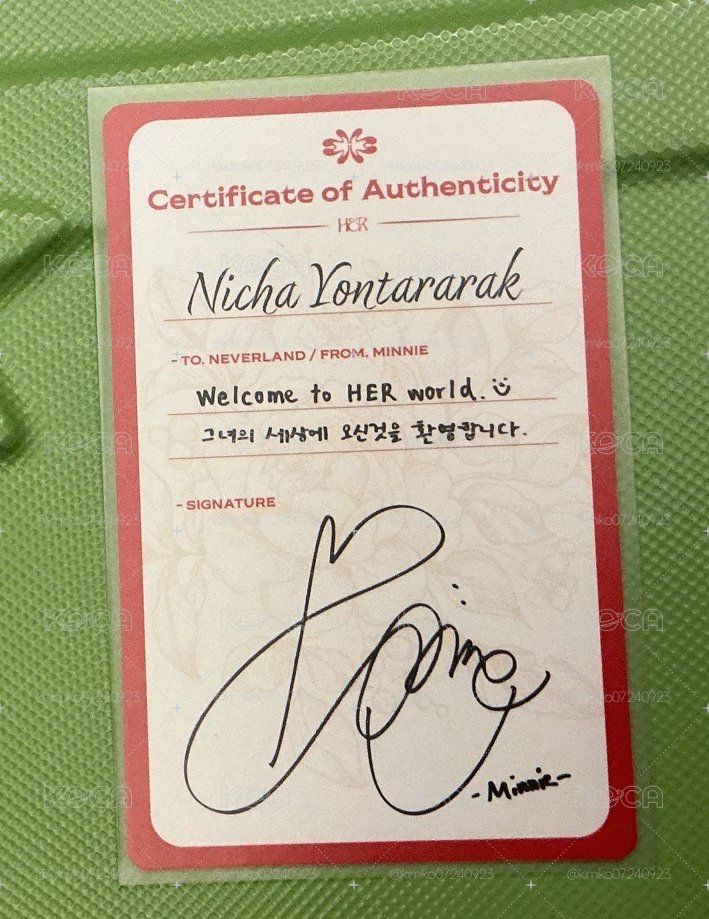 Certificate of Authenticity
HER
Nicha Yontararak
- TO. NEVERLAND / FROM. MINNIE
Welcome to HER world.
그녀의 세상에 오신것을 환영합니다.
- SIGNATURE
Minnie
- Minnie -
KOCA
@kmko07240923